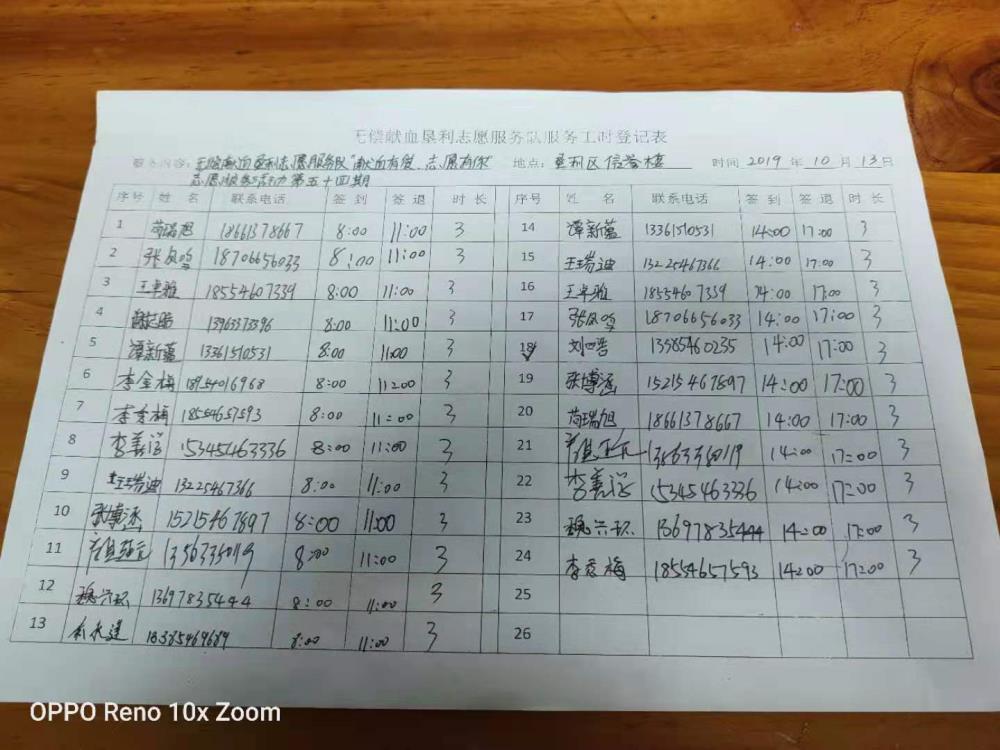 无偿献血垦利志愿服务队服务工时登记表
服务内容：无偿献血垦利志愿服务队"献血有爱 志愿有你" 地点：垦利区信誉楼 时间 2019 年 10 月 13 日
志愿服务活动第五十四期
序号 姓 名 联系电话 签 到 签 退 时 长 序号 姓 名 联系电话 签 到 签 退 时 长
1 苟瑞旭 18661378667 8:00 11:00 3 14 谭新蕴 13361510531 14:00 17:00 3
2 张凤鸣 18706656033 8:00 11:00 3 15 王瑞迪 13225467366 14:00 17:00 3
3 王卓雅 18554607339 8:00 11:00 3 16 王卓雅 18554607339 14:00 17:00 3
4 13963373396 8:00 11:00 3 17 张凤鸣 18706656033 14:00 17:00 3
5 谭新蕴 13361510531 8:00 11:00 3 18 13385460235 14:00 17:00 3
6 李金梅 18954016968 8:00 11:00 3 19 张博涵 15215467897 14:00 17:00 3
7 李秀梅 18554657593 8:00 11:00 3 20 苟瑞旭 18661378667 14:00 17:00 3
8 李善谊 15345463336 8:00 11:00 3 21 14:00 17:00 3
9 王瑞迪 13225467366 8:00 11:00 3 22 李善谊 15345463336 14:00 17:00 3
10 张博涵 15215467897 8:00 11:00 3 23 魏六环 13697835444 14:00 17:00 3
11 8:00 11:00 3 24 李秀梅 18554657593 14:00 17:00 3
12 魏六环 13697835444 8:00 11:00 3 25
13 18385469689 8:00 11:00 3 26
OPPO Reno 10x Zoom